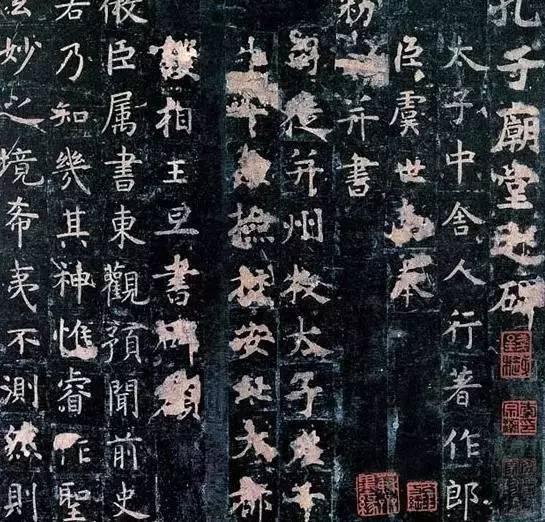 孔子廟堂之碑
太子中舍人行著作郎
臣虞世南奉
勑并書
司徒并州牧太子左千
牛率兼撿挍安北大都
護相王旦書碑額
微臣属書東觀預聞前史
若乃知幾其神惟睿作聖
玄妙之境希夷不測然則